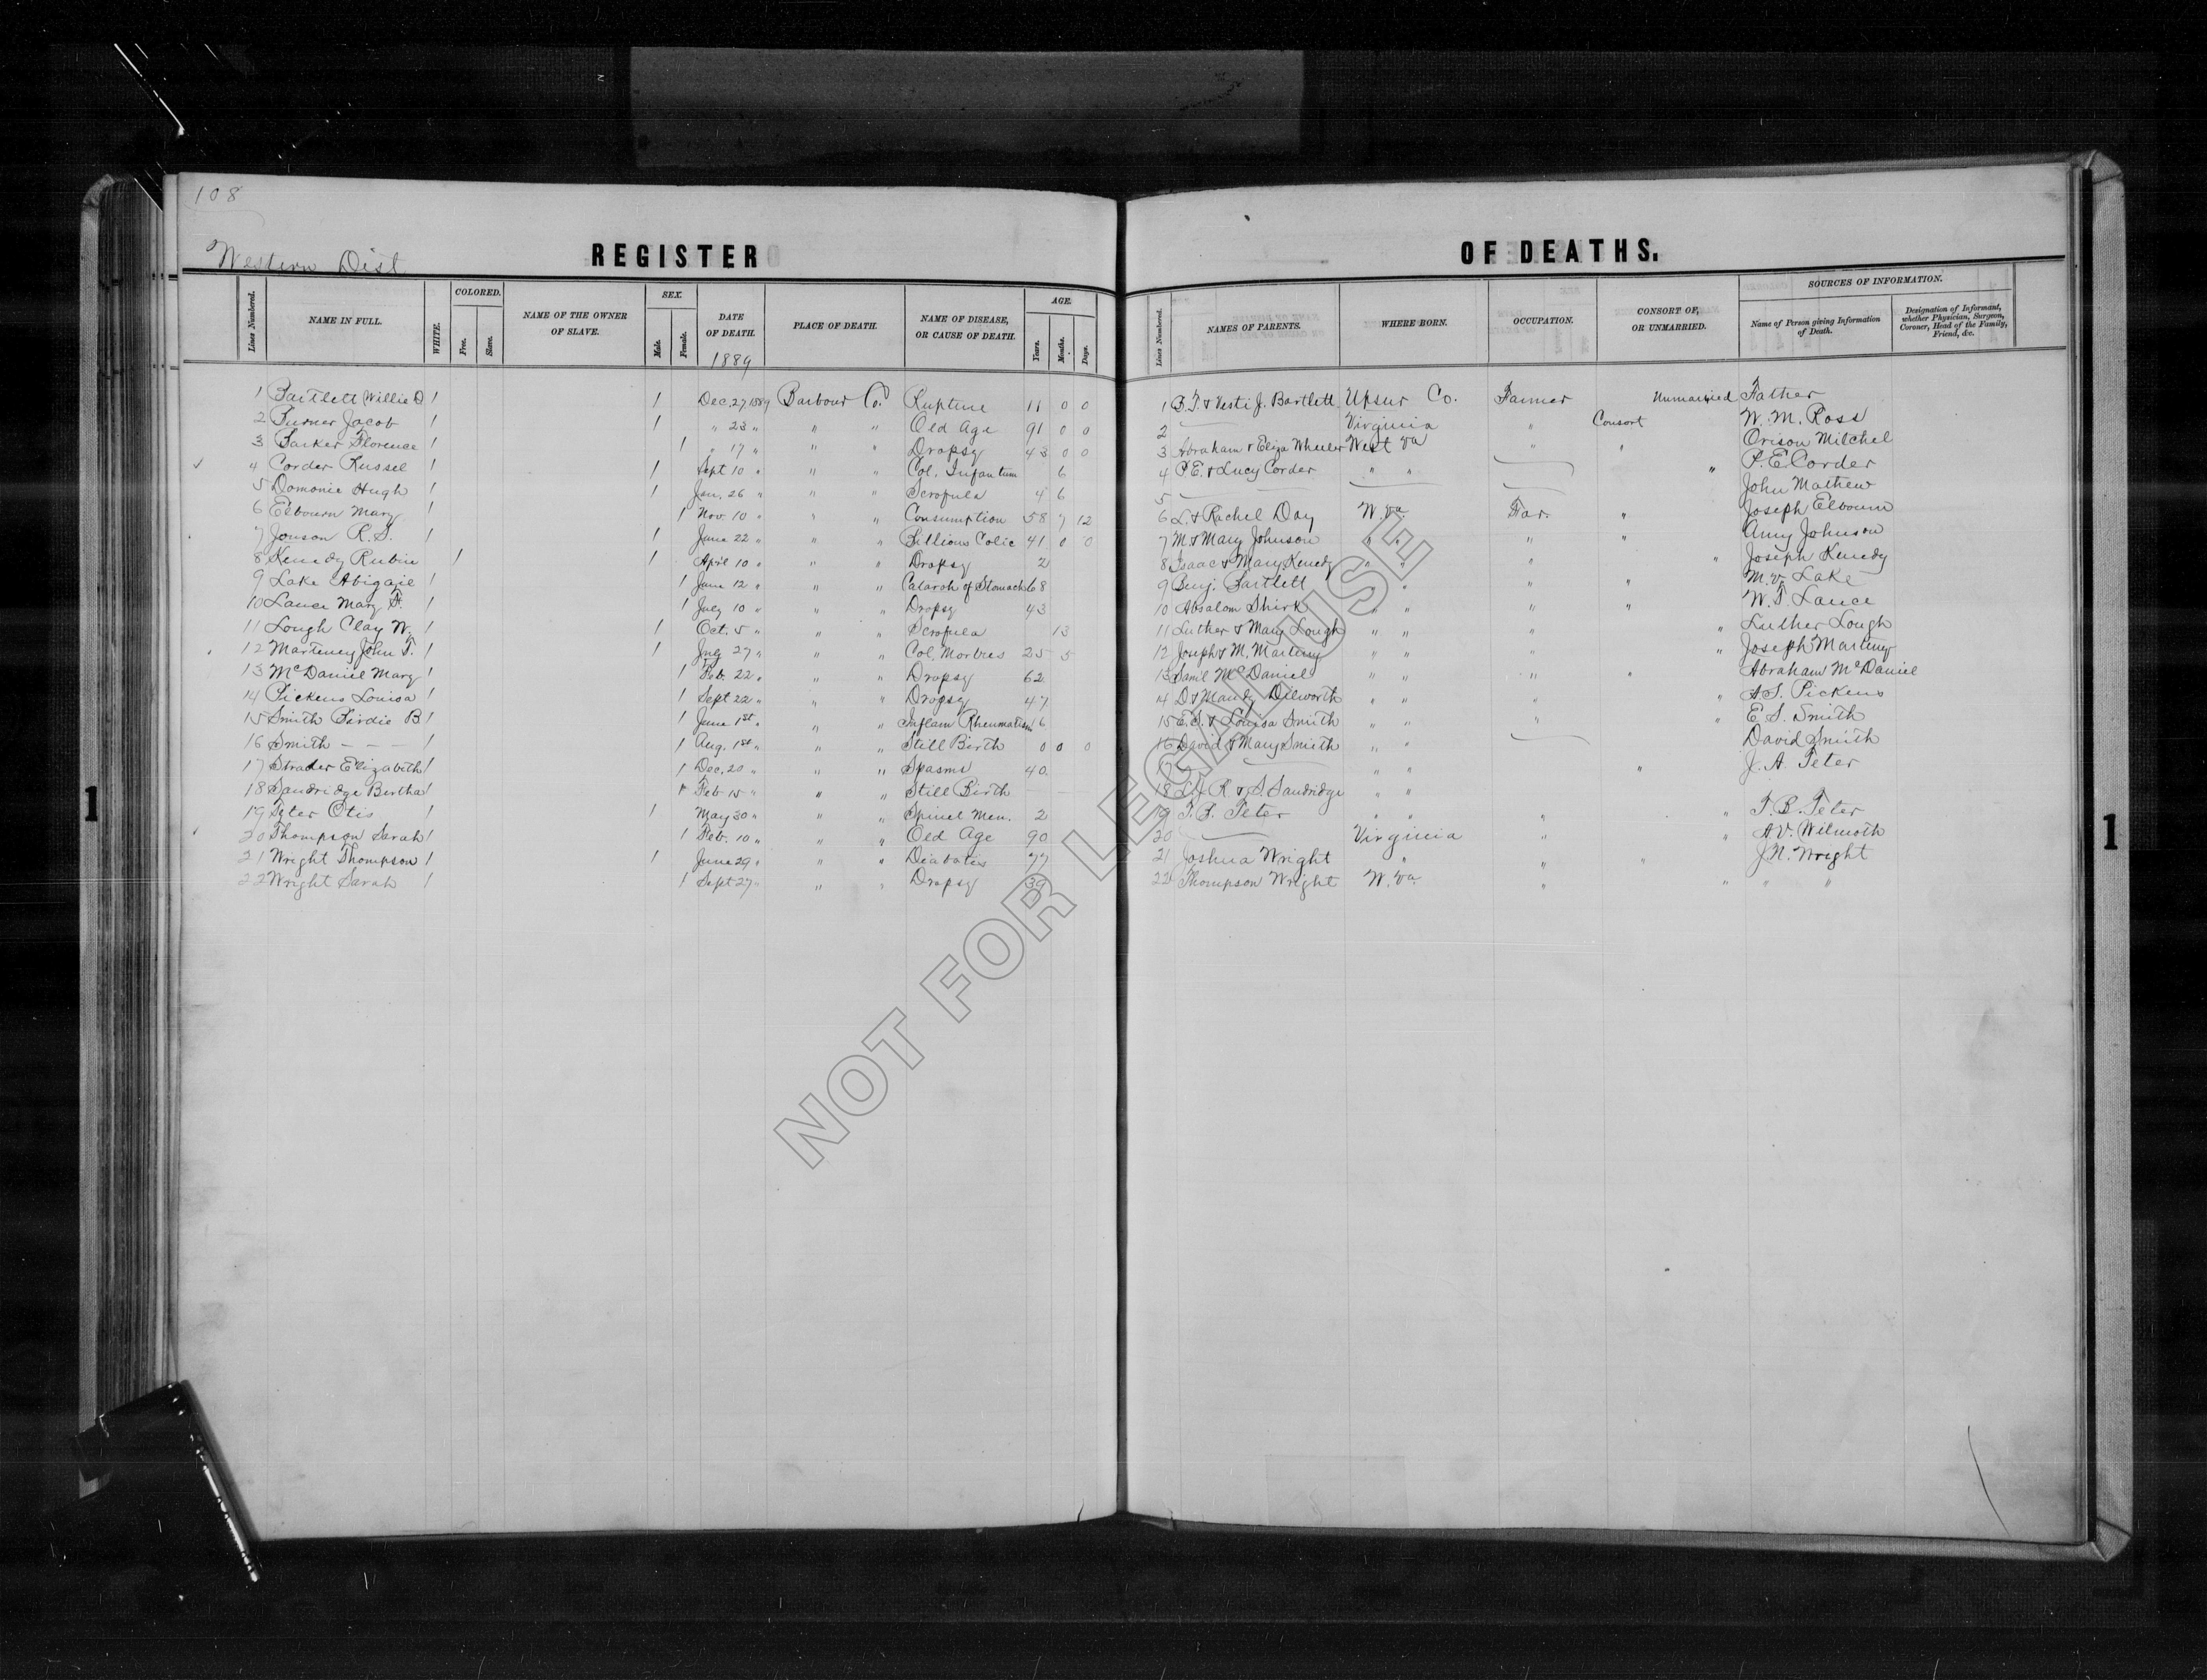 108
Western Dist
REGISTER OF DEATHS.
Lines Numbered. NAME IN FULL. WHITE. COLORED. Free. Slave. NAME OF THE OWNER OF SLAVE. SEX. Male. Female. DATE OF DEATH. 1889 PLACE OF DEATH. NAME OF DISEASE, OR CAUSE OF DEATH. AGE. Years. Months. Days.
Lines Numbered. NAMES OF PARENTS. WHERE BORN. OCCUPATION. CONSORT OF, OR UNMARRIED. SOURCES OF INFORMATION. Name of Person giving Information of Death. Designation of Informant, whether Physician, Surgeon, Coroner, Head of the Family, Friend, &c.
1 Bartlett Willie D 1 1 Dec. 27, 1889 Barbour Co. Rupture 11 0 0
2 Jacob 1 1 " 23 " " " Old Age 91 0 0
3 Barker Florence 1 1 " 17 " " " Dropsy 43 0 0
4 Corder Russel 1 1 Sept 10 " " " Col. Infantum 6
5 Domonie Hugh 1 1 Jan. 26 " " " Scrofula 4 6
6 Elbourn Mary 1 1 Nov. 10 " " " Consumption 58 7 12
7 Jonson R. S. 1 1 June 22 " " " Billious Colic 41 0 0
8 Kenedy Rubin 1 1 April 10 " " " Dropsy 2
9 Lake Abigajie 1 1 June 12 " " " Catarah of Stomach 68
10 Lance Mary F. 1 1 July 10 " " " Dropsy 43
11 Lough Clay W. 1 1 Oct. 5 " " " Scrofula 13
12 Marteney John T. 1 1 July 27 " " " Col. Morbus 25 5
13 McDaniel Mary 1 1 Feb. 22 " " " Dropsy 62
14 Pickens Louisa 1 1 Sept 22 " " " Dropsy 47
15 Smith Birdie B 1 1 June 1st " " " Inflam Rheumatism 6
16 Smith - - - 1 1 Aug. 1st " " " Still Birth 0 0 0
17 Strader Elizabeth 1 1 Dec. 20 " " " Spasms 40
18 Sandridge Bertha 1 1 Feb 15 " " " Still Birth
19 Teter Otis 1 1 May 30 " " " Spinel Men. 2
20 Thompson Sarah 1 1 Feb. 10 " " " Old Age 90
21 Wright Thompson 1 1 June 29 " " " Diabatis 77
22 Wright Sarah 1 1 Sept 27 " " " Dropsy 39
1 B. T. & Vesti J. Bartlett Upsur Co. Farmer Unmarried Father
2 Virginia " Consort W. M. Ross
3 Abraham & Eliza Wheeler West Va " " Orison Mitchel
4 P. E. & Lucy Corder " " " P. E. Corder
5 John Mathew
6 L. & Rachel Day W. Va. Far. " Joseph Elbourn
7 M & Mary Johnson " " " " Amy Johnson
8 Isaac & Mary Kenedy " " " " Joseph Kenedy
9 Benj. Bartlett " " " M. V. Lake
10 Absalom Shirk " " " " W. T. Lance
11 Luther & Mary Lough " " " " Luther Lough
12 Joseph & M. Marteney " " " " Joseph Marteney
13 Samil McDaniel " " " " Abraham McDaniel
14 D & Mandy Dilworth " " " " A S. Pickens
15 E. S. & Louisa Smith " " " " E S. Smith
16 David & Mary Smith " " David Smith
17 " " " J. A. Teter
18 R & S. Sandridge " "
19 T. B. Teter " " " " T. B. Teter
20 Virginia " " A V. Wilmoth
21 Joshua Wright " " " J. N. Wright
22 Thompson Wright W. Va. " " " "
NOT FOR LEGAL USE
1
1